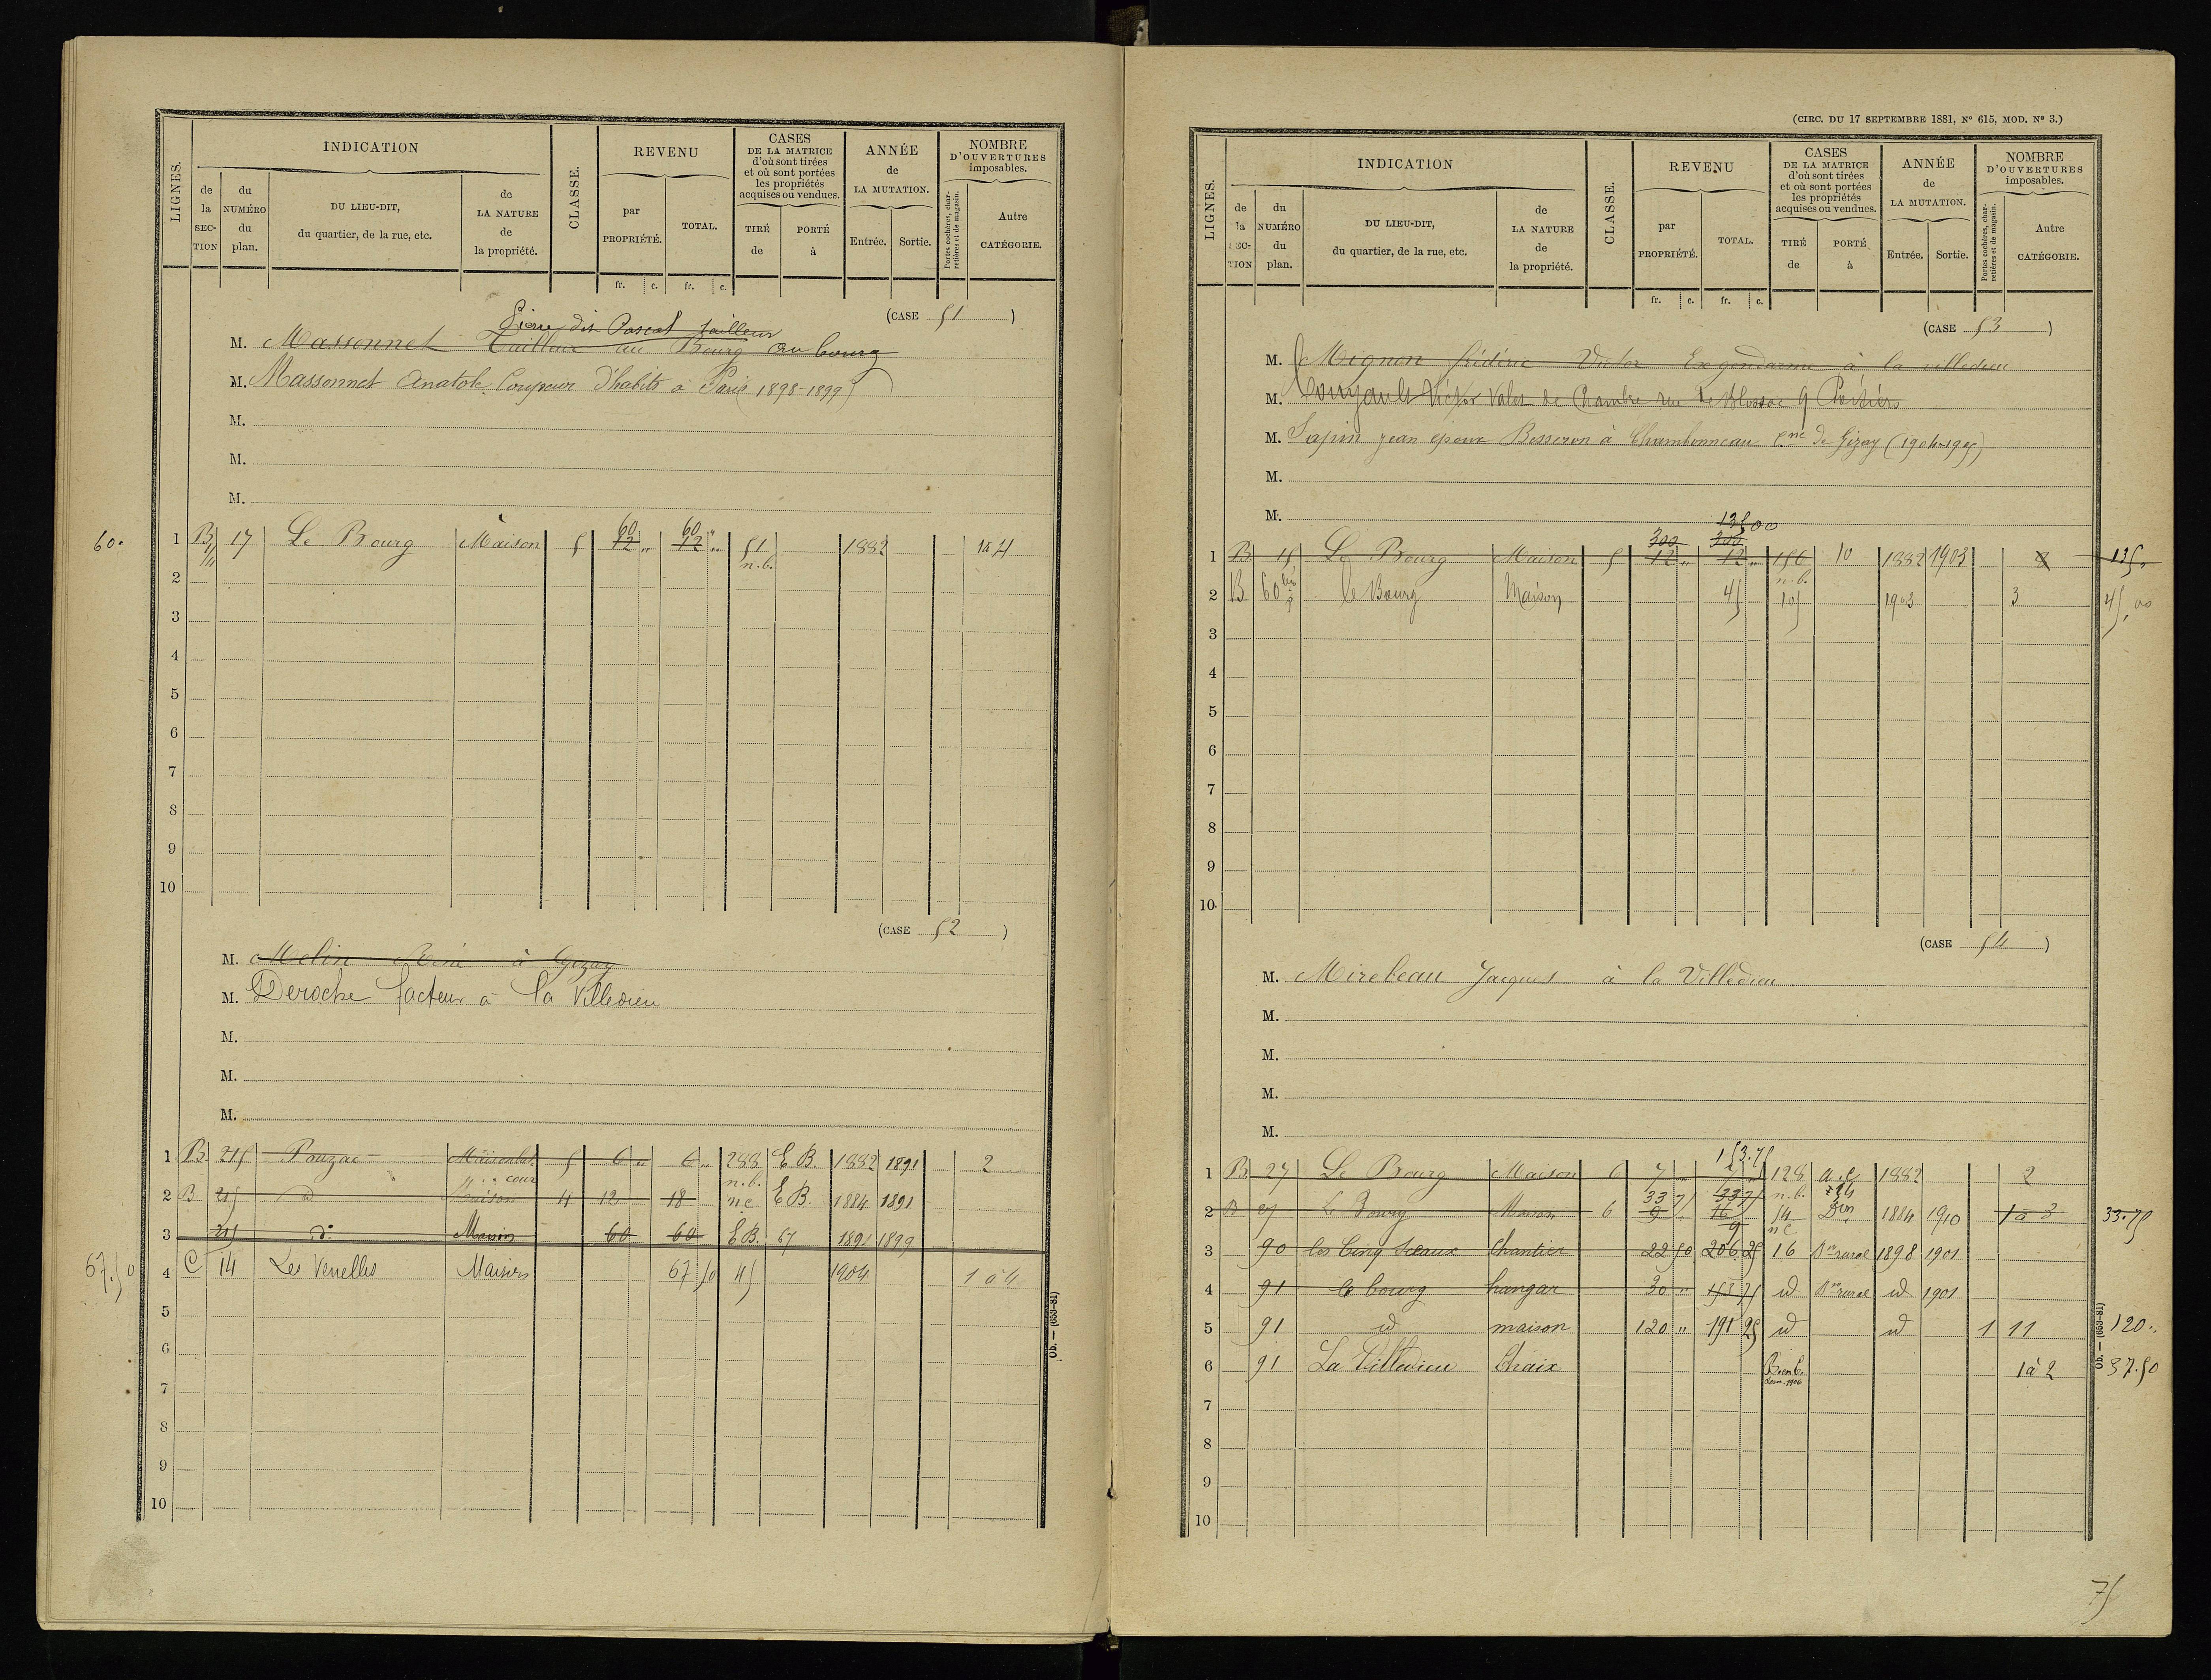 LIGNES.
INDICATION
de la SECTION
du NUMÉRO du plan.
DU LIEU-DIT, du quartier, de la rue, etc.
de LA NATURE de la propriété.
CLASSE.
REVENU
par PROPRIÉTÉ.
TOTAL.
fr. c. fr. c.
CASES DE LA MATRICE d'où sont tirées et où sont portées les propriétés acquises ou vendues.
TIRÉ de
PORTÉ à
ANNÉE de LA MUTATION.
Entrée. Sortie.
NOMBRE D'OUVERTURES imposables.
Portes cochères, charretières et de magasin.
Autre CATÉGORIE.
(CASE 51)
Pierre dit Pascal tailleur
M. Massonnet Tailleur au Bourg au bourg
M. Massonnet Anatole Coupeur d'habits à Paris 1898-1899
M.
M.
M.
60 60 "
60. 1 B 17 Le Bourg Maison 5 12 " 12 " 51 1882 1 à 4
n.b.
2
3
4
5
6
7
8
9
10
(CASE 52)
M. Melin à Gizay
M. Deroche facteur à la Villedieu
M.
M.
M.
1 B. 215 Pouzac 5 6 " 6 " 288 E B. 1882 1891 2
cour n.b.
2 B 215 d Maison 4 12 18 nc E B. 1884 1891
3 215 d° Maison 60 60 E B. 67 1891 1899
67.50 4 C 14 Les Venelles Maison 67 50 45 1904 1 à 4
5
6
7
8
9
10
Ob. — (653-81)
(CIRC. DU 17 SEPTEMBRE 1881, N° 615, MOD. N° 3.)
LIGNES.
INDICATION
de la SECTION
du NUMÉRO du plan.
DU LIEU-DIT, du quartier, de la rue, etc.
de LA NATURE de la propriété.
CLASSE.
REVENU
par PROPRIÉTÉ.
TOTAL.
fr. c. fr. c.
CASES DE LA MATRICE d'où sont tirées et où sont portées les propriétés acquises ou vendues.
TIRÉ de
PORTÉ à
ANNÉE de LA MUTATION.
Entrée. Sortie.
NOMBRE D'OUVERTURES imposables.
Portes cochères, charretières et de magasin.
Autre CATÉGORIE.
(CASE 53)
M. Mignon frédéric Victor Ex gendarme à la villedieu
M. Victor Valet de Chambre rue de Blossac 9 Poitiers
M. Sapin Jean époux Besseron à Chambonneau Cne de Gizay (1904-1905)
M.
M.
135 00
300 300
1 B. 15 Le Bourg Maison 5 12 " 12 " 156 10 1882 1903 8 135 "
n.b.
2 B 60 bis p le Bourg Maison 45 105 1903 3 45,00
3
4
5
6
7
8
9
10
(CASE 54)
M. Mirebeau Jacques à la Villedieu
M.
M.
M.
M.
153.75
1 B. 27 Le Bourg Maison 6 7 7 128 a.c 1882 2
33 75 33 75 n.b.
2 B 27 Le Bourg Maison 6 9 16 54 Don 1884 1910 1 à 3 33.75
9 nc
3 90 les Cinq Sceaux Chantier 22 50 206 25 16 Don rurale 1898 1901
4 91 le bourg hangar 30 " 153 75 id Don rurale id 1901
5 91 id maison 120 " 191 25 id id 1 11 120 "
6 91 La Villedieu Chaix 1 à 2 37.50
7
8
9
10
Ob. — (653-81)
75